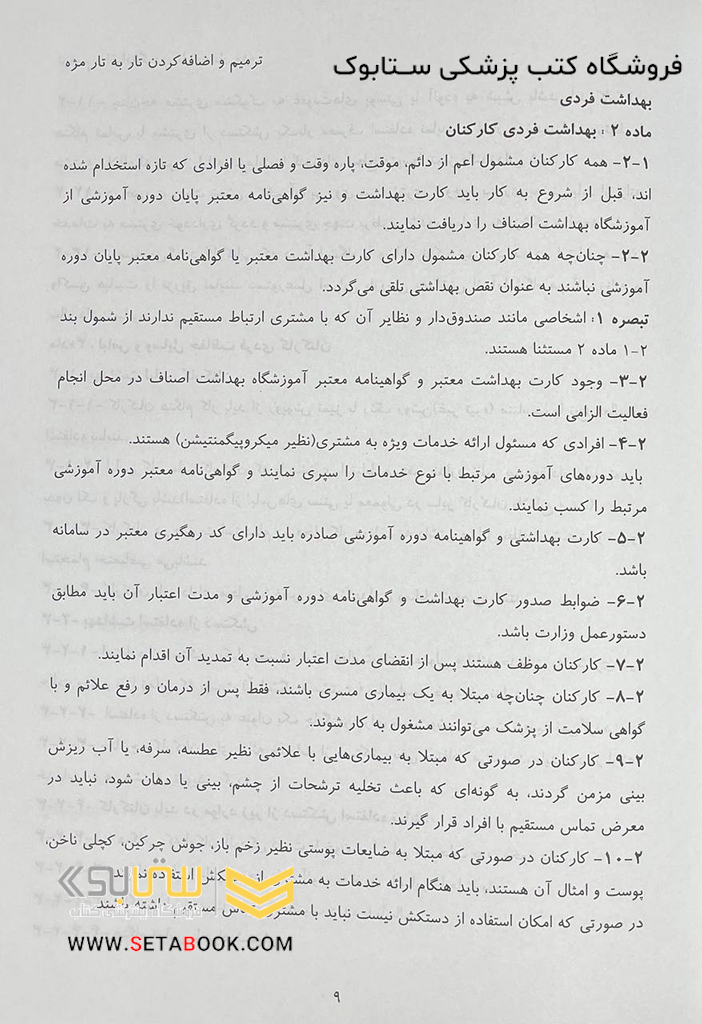 ترمیم و اضافه‌کردن تار به تار مژه
فروشگاه کتب پزشکی ستابوک
بهداشت فردی
ماده ۲ : بهداشت فردی کارکنان
۲-۱- همه کارکنان مشمول اعم از دائم، موقت، پاره وقت و فصلی یا افرادی که تازه استخدام شده
اند، قبل از شروع به کار باید کارت بهداشت و نیز گواهی‌نامه معتبر پایان دوره آموزشی از
آموزشگاه بهداشت اصناف را دریافت نمایند.
۲-۲- چنان‌چه همه کارکنان مشمول دارای کارت بهداشت معتبر یا گواهی‌نامه معتبر پایان دوره
آموزشی نباشند به عنوان نقص بهداشتی تلقی می‌گردد.
تبصره ۱: اشخاصی مانند صندوق‌دار و نظایر آن که با مشتری ارتباط مستقیم ندارند از شمول بند
۲-۱ ماده ۲ مستثنا هستند.
۲-۳- وجود کارت بهداشت معتبر و گواهینامه معتبر آموزشگاه بهداشت اصناف در محل انجام
فعالیت الزامی است.
۲-۴- افرادی که مسئول ارائه خدمات ویژه به مشتری(نظیر میکروپیگمنتیشن) هستند.
باید دوره‌های آموزشی مرتبط با نوع خدمات را سپری نمایند و گواهی‌نامه معتبر دوره آموزشی
مرتبط را کسب نمایند.
۲-۵- کارت بهداشتی و گواهینامه دوره آموزشی صادره باید دارای کد رهگیری معتبر در سامانه
باشد.
۲-۶- ضوابط صدور کارت بهداشت و گواهی‌نامه دوره آموزشی و مدت اعتبار آن باید مطابق
دستورعمل وزارت باشد.
۲-۷- کارکنان موظف هستند پس از انقضای مدت اعتبار نسبت به تمدید آن اقدام نمایند.
۲-۸- کارکنان چنان‌چه مبتلا به یک بیماری مسری باشند، فقط پس از درمان و رفع علائم و با
گواهی سلامت از پزشک می‌توانند مشغول به کار شوند.
۲-۹- کارکنان در صورتی که مبتلا به بیماری‌هایی با علائمی نظیر عطسه، سرفه، یا آب ریزش
بینی مزمن گردند، به گونه‌ای که باعث تخلیه ترشحات از چشم، بینی یا دهان شود، نباید در
معرض تماس مستقیم با افراد قرار گیرند.
۲-۱۰- کارکنان در صورتی که مبتلا به ضایعات پوستی نظیر زخم باز، جوش چرکین، کچلی ناخن،
پوست و امثال آن هستند، باید هنگام ارائه خدمات به مشتری از دستکش استفاده
در صورتی که امکان استفاده از دستکش نیست نباید با مشتری تماس مستقیم داشته باشند.
ستابوک
فروشگاه پزشکی کتاب
WWW.SETABOOK.COM
۹